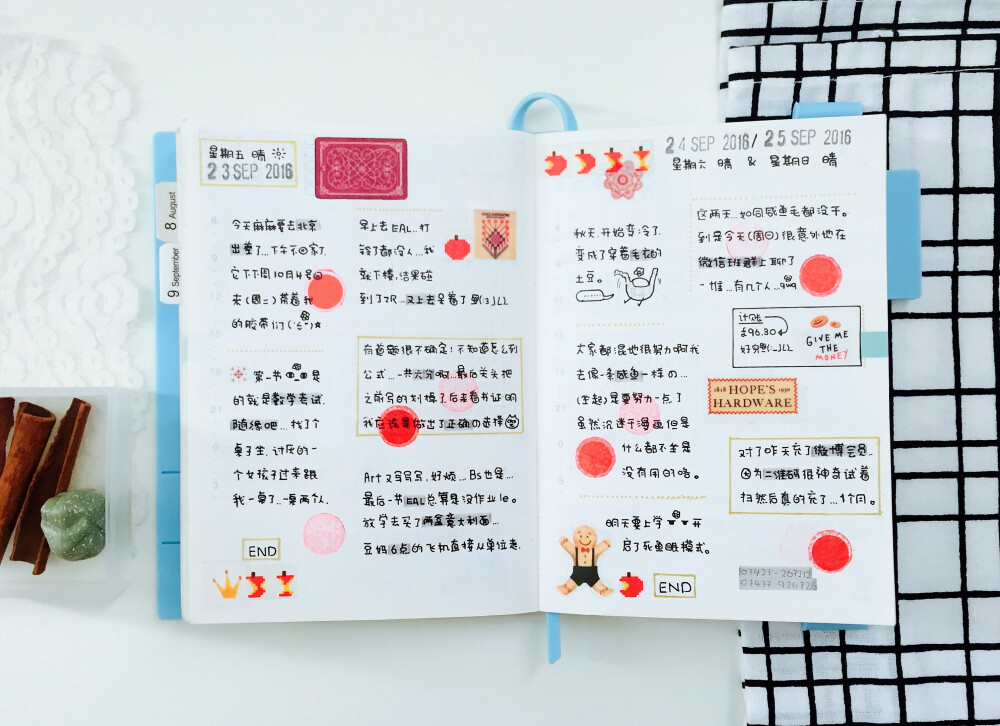 8 August
9 September
星期五 晴
23 SEP 2016
今天麻麻要去北京
出差了...下午不回家了.
它下下周10月4号回
来(周二)带着我
的胶带们
第一节 是
的就是数学考试.
随缘吧...找了个
桌子坐.讨厌的一
个女孩子过来跟
我一桌了..一桌两个人.
END
早上去EAL..打
铃了都没人...我
就下楼,结果碰
到了JR...又上去呆着了
有道题很不确定:不知道怎么列
公式...一共六分啊...最后关头把
之前写的划掉了.后来看书证明
我应该是做出了正确の选择
Art又写写写..好烦...Bs也是...
最后一节EAL总算是没作业le。
放学去买了两盒意大利面...
豆妈6点的飞机直接从单位走.
24 SEP 2016/ 25 SEP 2016
星期六 晴 & 星期日 晴
秋天.开始变冷了.
变成了穿着毛衣的
土豆。
大家都混他很努力啊我
去像一条咸鱼一样の...
(坐起)是要努力一点了
虽然沉迷于漫画但是
什么都不坐是
没有用的咯。
明天要上学 开
启了死鱼眼模式。
END
这两天...如同咸鱼毛都没干。
到是今天(周日)很意外地在
微信班群上聊了
一堆...有几个人...qwq
计账
£96.30
GIVE ME
THE
MONEY
1818 HOPE'S 1930
HARDWARE
对了昨天充了微博会员..
因为二维码很神奇试着
扫然后真的充了...1个月。
07421-267212
07497 926726